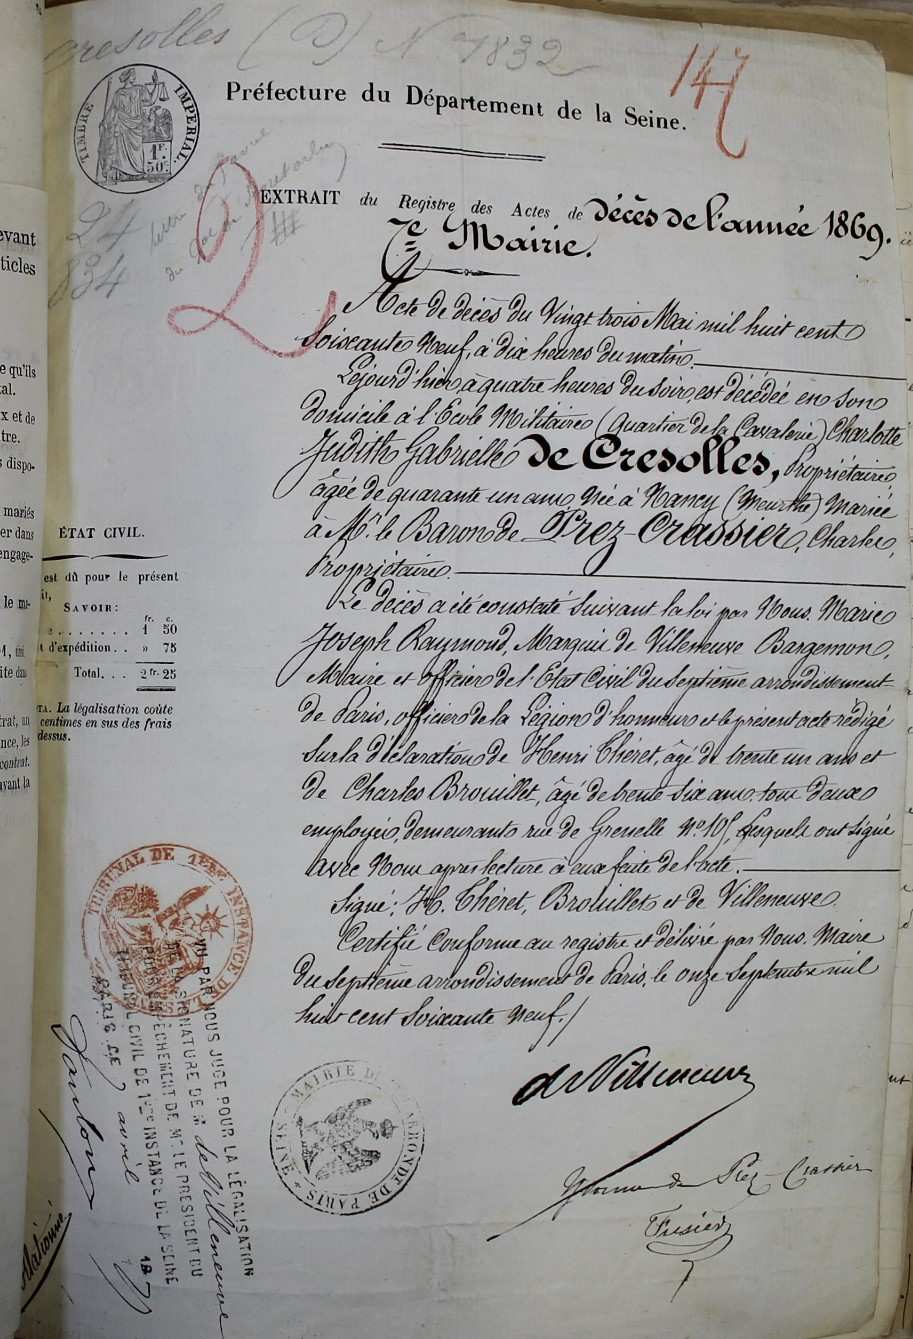 Cresolles (D) N° 1832
147
TIMBRE IMPERIAL.
1F. 50c.
Préfecture du Département de la Seine.
24
834
2
EXTRAIT du Registre des Actes de décès de l'année 1869.
7e Mairie.
Acte de décès du Vingt trois Mai mil huit cent
Soixante Neuf, à dix heures du matin.
Lejourd'hier, à quatre heures du soir, est décédée en son
domicile à l'Ecole Militaire (Quartier de la Cavalerie) Charlotte
Judith Gabrielle de Cresolles, Propriétaire,
âgée de quarante un ans Née à Nancy (Meurthe) Mariée
à Mr. le Baron de Prez-Crassier, Charles,
Propriétaire.
Le décès a été constaté suivant la loi par Nous. Marie
Joseph Raymond, Marquis de Villeneuve Bargemon,
Maire et officier de l'Etat Civil du Septième arrondissement
de Paris, officier de la Légion d'honneur et le présent acte rédigé
Sur la déclaration de Henri Théret, âgé de trente un ans et
de Charles Brouillet, âgé de trente Six ans tous deux
employés, demeurant rue de Grenelle No. 105, lesquels ont signé
avec Nous après lecture à eux faite de l'acte.
Signé: H. Théret, Brouillet et de Villeneuve
Certifié Conforme au registre et délivré par Nous. Maire
du Septième arrondissement de Paris, le onze Septembre mil
huit cent Soixante Neuf./
de Villeneuve
de Prez-Crassier
ÉTAT CIVIL.
est dû pour le présent
it,
SAVOIR:
fr. c.
. . . . . . . 1 50
d'expédition. . » 75
Total. . . 2 fr. 25
TA. La légalisation coûte
centimes en sus des frais
dessus.
TRIBUNAL DE 1ERE INSTANCE DE LA
VU PAR NOUS JUGE POUR LA LÉGALISATION
DE LA SIGNATURE DE M de Villeneuve
POUR EMPÊCHEMENT DE M. LE PRÉSIDENT DU
TRIBUNAL CIVIL DE 1RE INSTANCE DE LA SEINE
PARIS LE 7 avril 187
MAIRIE DU ARRONDT DE PARIS SEINE
evant
ticles
e qu'ils
tal.
x et de
tre.
s dispo-
mariés
er dans
engage-
le mi-
ite dans
trat, un
nce, les
contrat.
avant la